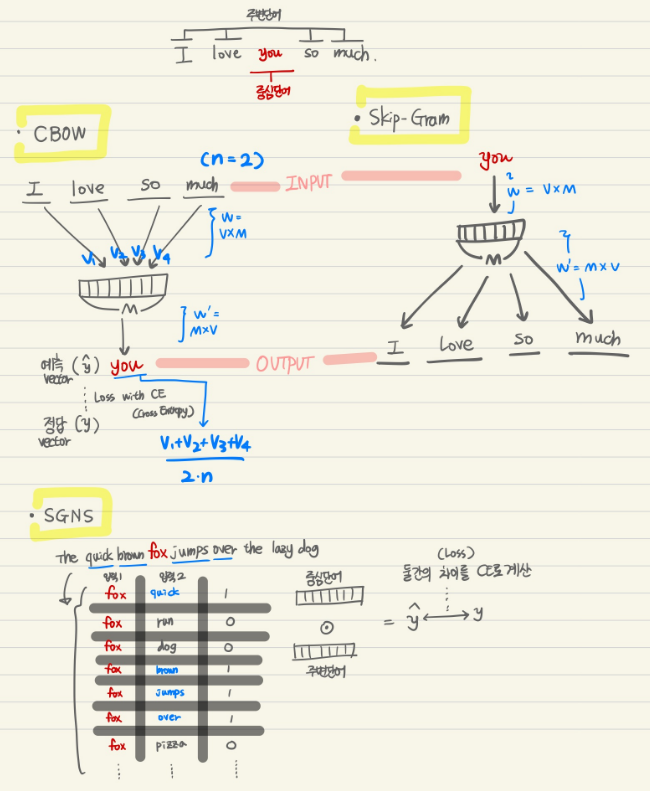 주변단어
I love you so much.
중심단어
• CBOW
• Skip-Gram
(n=2)
I love so much
INPUT
you
W = V×M
W = V×M
V1 V2 V3 V4
M
M
W' = M×V
W' = M×V
I love so much
예측 (ŷ) vector
you
OUTPUT
Loss with CE
(Cross Entropy)
정답 (y) vector
V1+V2+V3+V4
2·n
• SGNS
The quick brown fox jumps over the lazy dog
입력1 입력2
fox quick 1
fox ran 0
fox dog 0
fox brown 1
fox jumps 1
fox over 1
fox pizza 0
중심단어
⊙
주변단어
(Loss)
둘간의 차이를 CE로 계산
= ŷ ↔ y